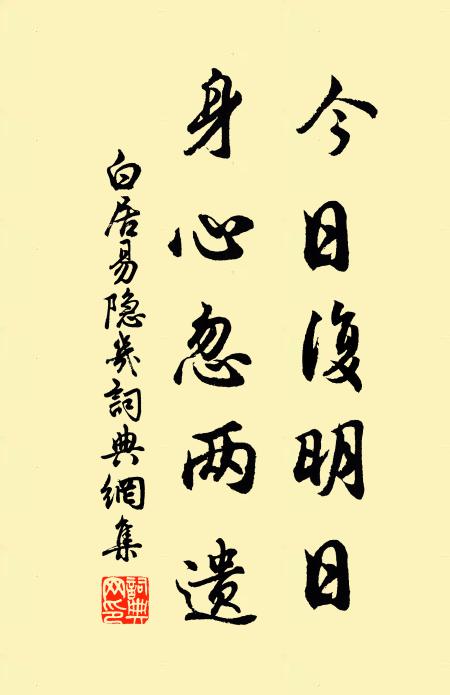 今日復明日
身心忽两遗
白居易隐几詞典網集
詞典网印